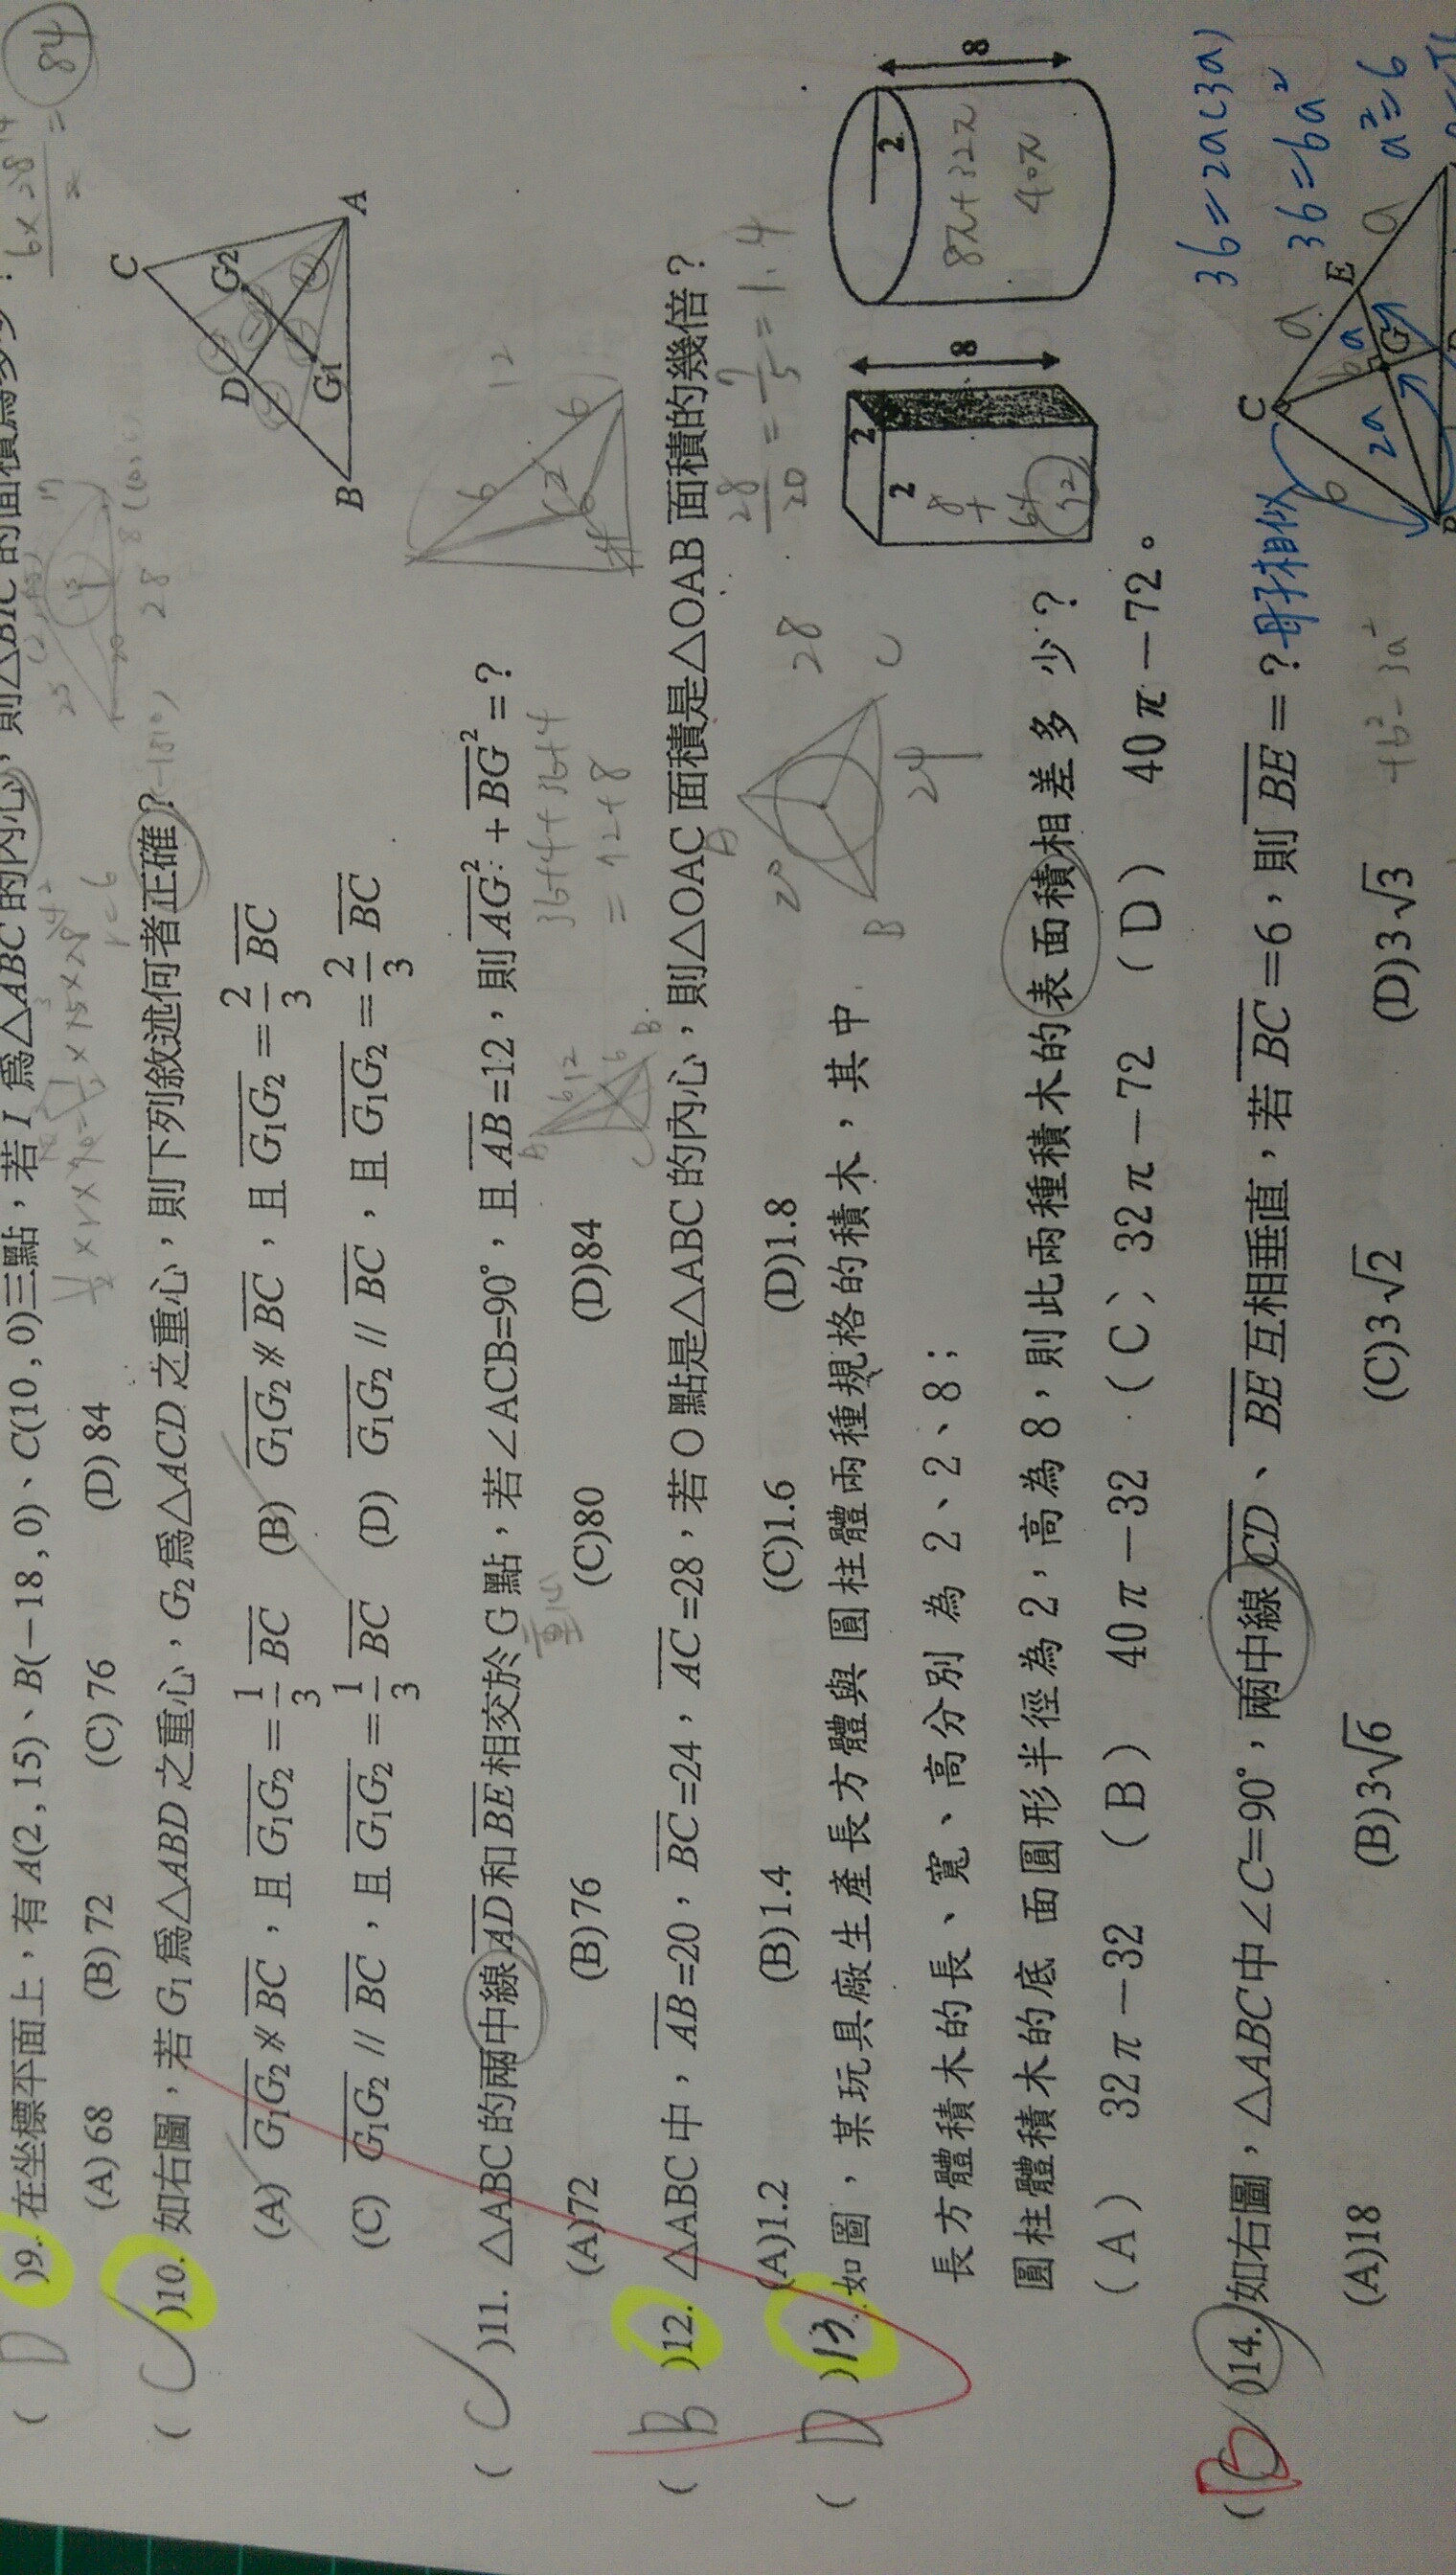 ( D )9. 在坐標平面上，有 A(2 , 15)、B(－18 , 0)、C(10 , 0)三點，若 I 為△ABC 的內心，則△BIC 的面積為多少？
(A) 68 (B) 72 (C) 76 (D) 84
6×28
2
=
84
28
( C )10. 如右圖，若 G₁ 為△ABD 之重心，G₂ 為△ACD 之重心，則下列敘述何者正確？
(A) G₁G₂ ∦ BC ，且 G₁G₂ = 1/3 BC (B) G₁G₂ ∦ BC ，且 G₁G₂ = 2/3 BC
(C) G₁G₂ // BC ，且 G₁G₂ = 1/3 BC (D) G₁G₂ // BC ，且 G₁G₂ = 2/3 BC
C
D
G2
G1
B
A
( C )11. △ABC 的兩中線 AD 和 BE 相交於 G 點，若∠ACB=90°，且 AB=12，則 AG² + BG² = ?
重心
36+4+36+4
= 72+8
(A)72 (B)76 (C)80 (D)84
6
12
6
( B )12. △ABC 中，AB=20，BC=24，AC=28，若 O 點是△ABC 的內心，則△OAC 面積是△OAB 面積的幾倍？
(A)1.2 (B)1.4 (C)1.6 (D)1.8
28/20 = 7/5 = 1.4
20
28
B
C
24
( D )13. 如圖，某玩具廠生產長方體與圓柱體兩種規格的積木，其中
長方體積木的長、寬、高分別為 2、2、8；
圓柱體積木的底 面圓形半徑為 2，高為 8，則此兩種積木的表面積相差多少？
(A) 32π－32 (B) 40π－32 (C) 32π－72 (D) 40π－72。
2
2
8
8
+
64
72
2
8
8π+32π
40π
( B )14. 如右圖，△ABC 中∠C=90°，兩中線 CD、BE 互相垂直，若 BC=6，則 BE = ? 母子相似
(A)18 (B)3√6 (C)3√2 (D)3√3
36=2a(3a)
36=6a²
a²=6
C
E
G
B
6
2a
a
a
a